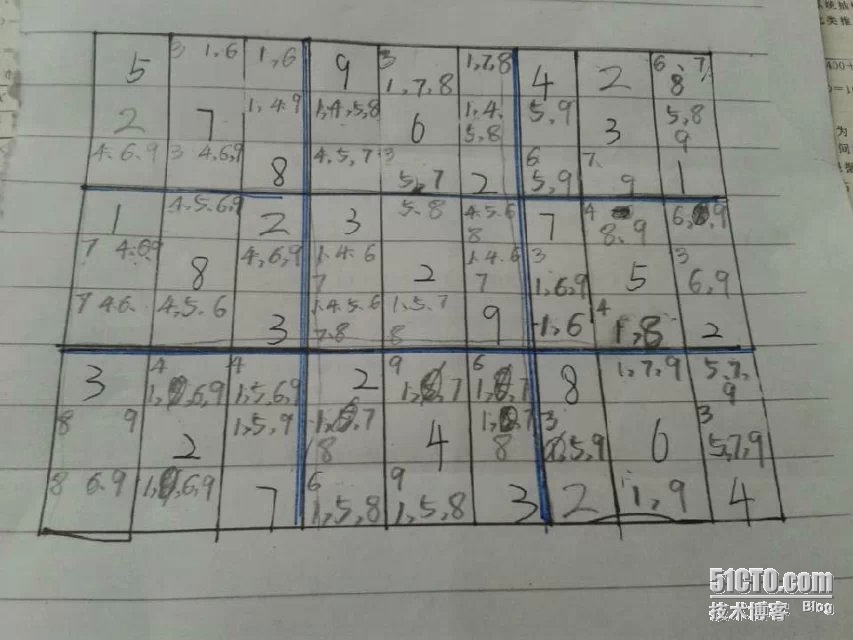 5 3 1,6 1,6 9 3 1,7,8 1,7,8 4 2 6,7 8
2 7 1,4.9 1,4,5,8 6 1,4. 5,8 5,9 3 5,8 9
4.6.9 3 4,6,9 8 4,5,7 3 5,7 2 6 5,9 7. 9 1
1 4.5.6,9 2 3 5.8 4.5.6 8 7 4 8.9 6, ,9
7 4.6,9 8 4,6,9 1.4.6 7 2 1.4.6 7 3 1,6,9 5 3 6,9
7 4.6. 4,5.6 3 1.4.5.6 7.8 1,5.7 8 9 1,6 4 1,8 2
3 4 1, ,6,9 4 1,5,6,9 2 9 1, ,7 6 1, ,7 8 1,7,9 5,7, 9
8 9 2 1,5,9 1, ,7 8 4 1, ,7 8 3 5,9 6 3 5,7,9
8 6.9 1, ,6,9 7 6 1,5,8 9 1,5,8 3 2 1,9 4
为
间
51CTO.com
技术博客 Blog